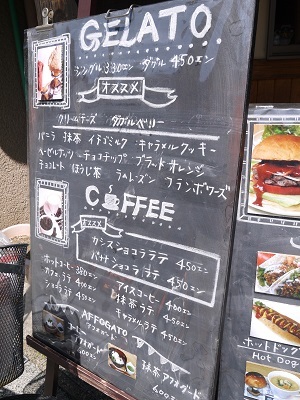 GELATO.
シングル 330エン ダブル 450エン
オススメ
クリームチーズ ダブルベリー
バニラ 抹茶 イチゴミルク キャラメルクッキー
ヘーゼルナッツ チョコチップ ブラッドオレンジ
チョコレート ほうじ茶 ラムレーズン フランボワーズ
COFFEE
オススメ
カシスショコララテ 450エン
バナナショコララテ 450エン
ホットコーヒー 380エン
アイスコーヒー 400エン
カフェラテ 400エン
抹茶ラテ 450エン
ショコララテ 450エン
キャラメルラテ 450エン
AFFOGATO
アフォガード
抹茶アフォガード
ホットドック
Hot Dog